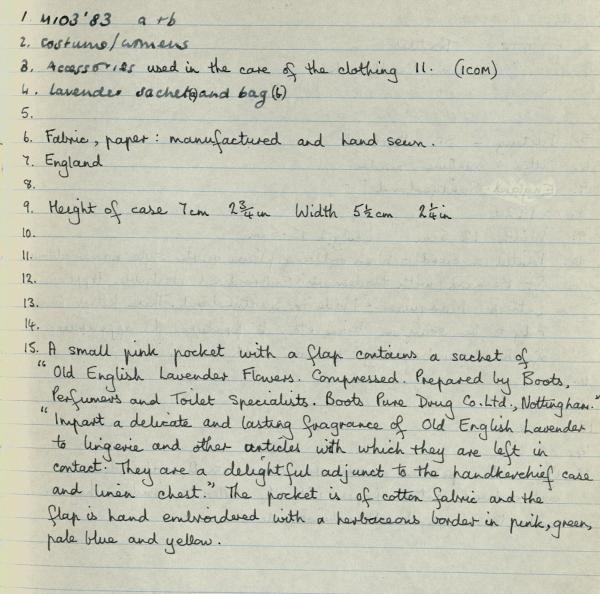 1. M103'83 a + b
2. costume/womens
3. Accessories used in the care of the clothing 11. (ICOM)
4. Lavender sachet(a) and bag (b)
5.
6. Fabric, paper: manufactured and hand sewn.
7. England
8.
9. Height of case 7cm 2 3/4 in Width 5 1/2 cm 2 1/4 in
10.
11.
12.
13.
14.
15. A small pink pocket with a flap contains a sachet of
"Old English Lavender Flowers. Compressed. Prepared by Boots,
Perfumers and Toilet Specialists. Boots Pure Drug Co. Ltd., Nottingham."
"Impart a delicate and lasting fragrance of Old English Lavender
to lingerie and other articles with which they are left in
contact. They are a delightful adjunct to the handkerchief case
and linen chest." The pocket is of cotton fabric and the
flap is hand embroidered with a herbaceous border in pink, green,
pale blue and yellow.